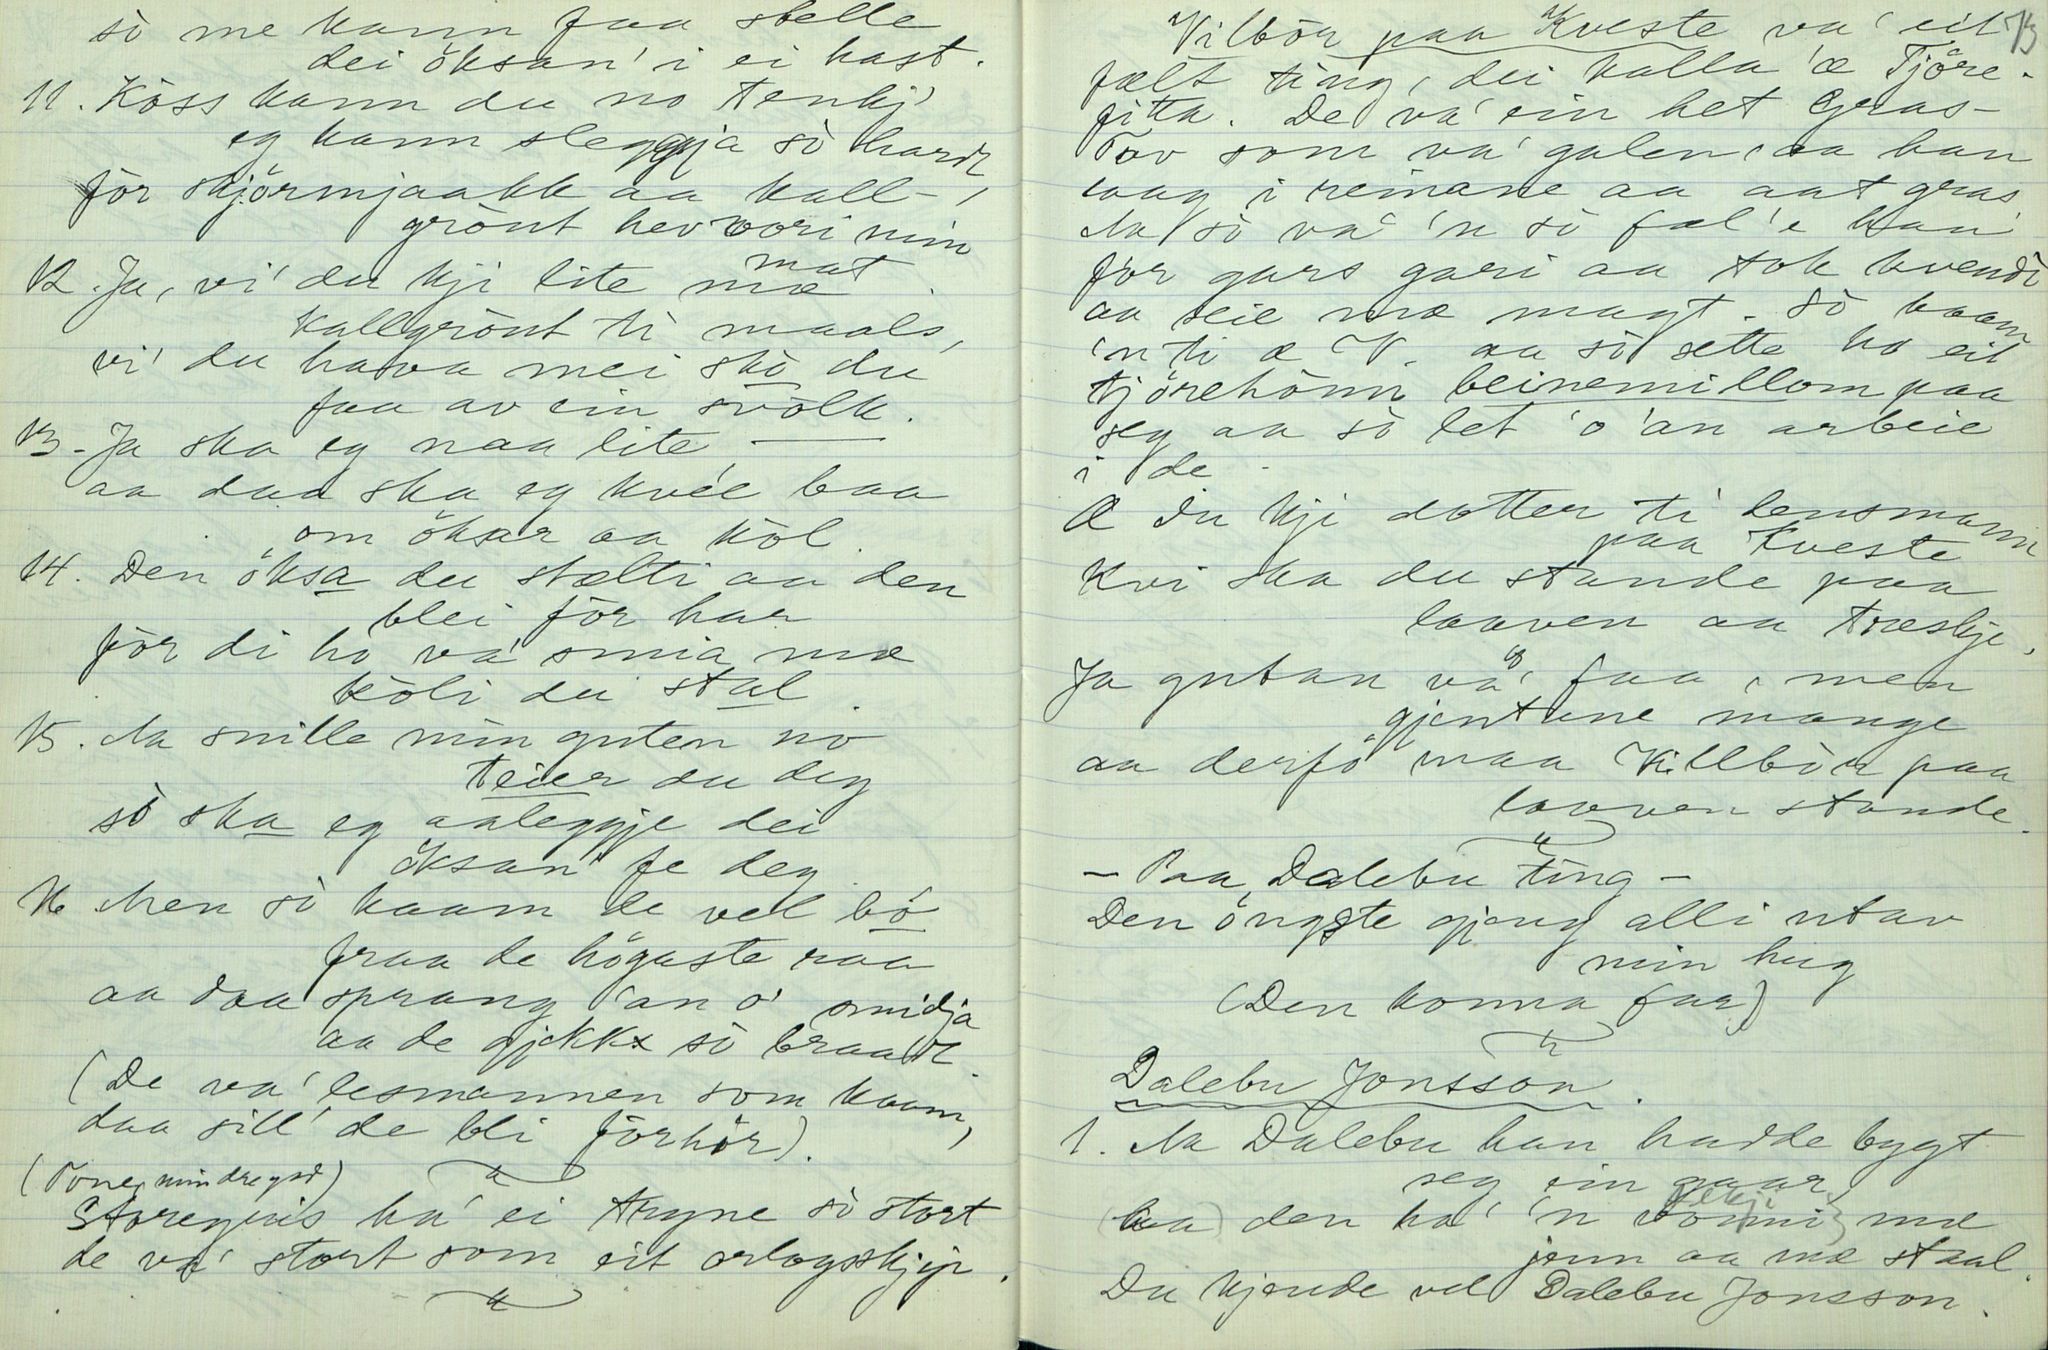 sò me kann faa stelle
dei öksan' i ei hast.
11. Kòss kann du no tenkj'
eg kann sleggja sò hardt,
fòr skjörmjaakk aa kall-
grònt hev vori min
mat.
12. Ja, vi' du kji lite mæ
kallgrònt ti maals,
vi' du hava mei skò du
faa av ein svòlk.
13. Ja ska eg naa lite
aa daa ska eg kvee baa
om öksar aa kòl.
14. Den öksa du stælti aa den
blei fòr har
fòr di ho va' smia mæ
kòli du stal.
15. Aa snille min guten no
teier du deg
sò ska eg aaleggje dei
öksan' fe deg.
16 Men sò kaam de vel bò
fraa de högaste raa
aa daa sprang 'an o' smidja
aa de gjekk sò braadt.
(De va' lesmannen som kaam,
daa sill' de bli förhör).
(Tone mindregsd)
Storegins ha' ei tryne sò stort
de va' stort som eit orlogsskjip.
73
Vilbòr paa Kveste va' eit
fælt ting, dei kalla 'æ Tjöre-
fitta. De va' ein het Gras-
Tov som va' galen, aa han
laag i reinane aa aat gras
Aa sò va' 'n sò fæl'e han
fór gars gari aa tok kvendi
aa seie mæ magt. Sò kaam
'n ti æ V. aa sò sette ho eit
tjörehònn beinemillom paa
seg aa sò let 'o 'an arbeie
i de.
Æ du kji dotter ti lensmann
paa Kveste
Kvi ska du stande paa
laaven aa træskje,
Ja gutan va' faa, men
gjentune mange
aa derfö maa Villbòr paa
laaven stande.
- Paa Dalebu ting -
Den öngste gjeng alli utav
min hug
(Den konna faa)
Dalebu Jonsson.
1. Aa Dalebu han hadde bygt
seg ein gaar
(aa) den ha' 'n vònni mæ
jønn aa mæ staal.
Du kjende vel Dalebu Jonsson.